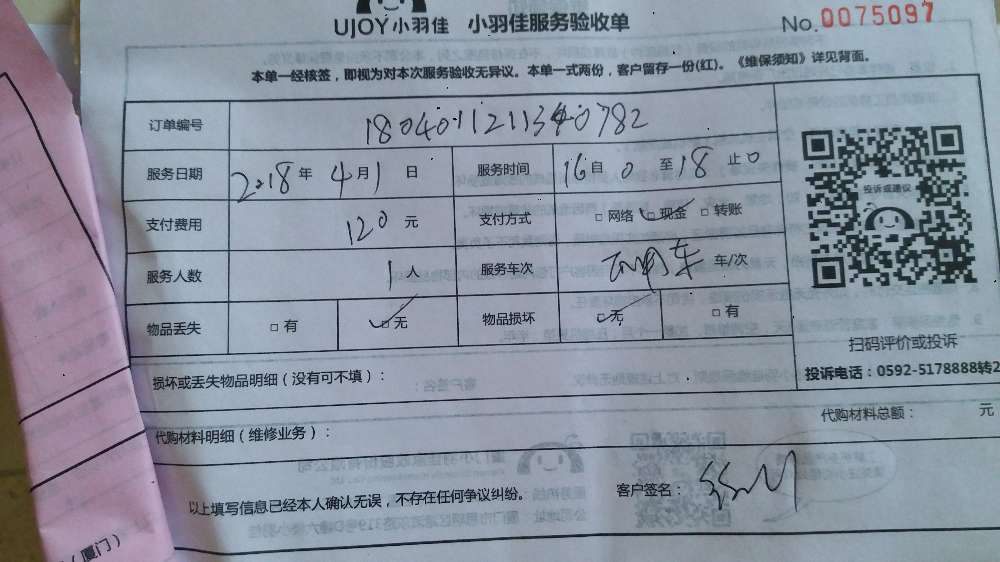 UJOY小羽佳 小羽佳服务验收单 No. 0075097
本单一经核签，即视为对本次服务验收无异议。本单一式两份，客户留存一份(红)。《维保须知》详见背面。
订单编号
服务日期 2018年 4月1日 服务时间 16自 0 至18止0
支付费用 120元 支付方式 □网络 □现金 □转账
服务人数 1人 服务车次 车/次
物品丢失 □有 □无 物品损坏 □无 □有
投诉或建议
扫码评价或投诉
投诉电话：0592-5178888转2
损坏或丢失物品明细（没有可不填）：
代购材料明细（维修业务）： 代购材料总额： 元
以上填写信息已经本人确认无误，不存在任何争议纠纷。 客户签名：
（厦门）